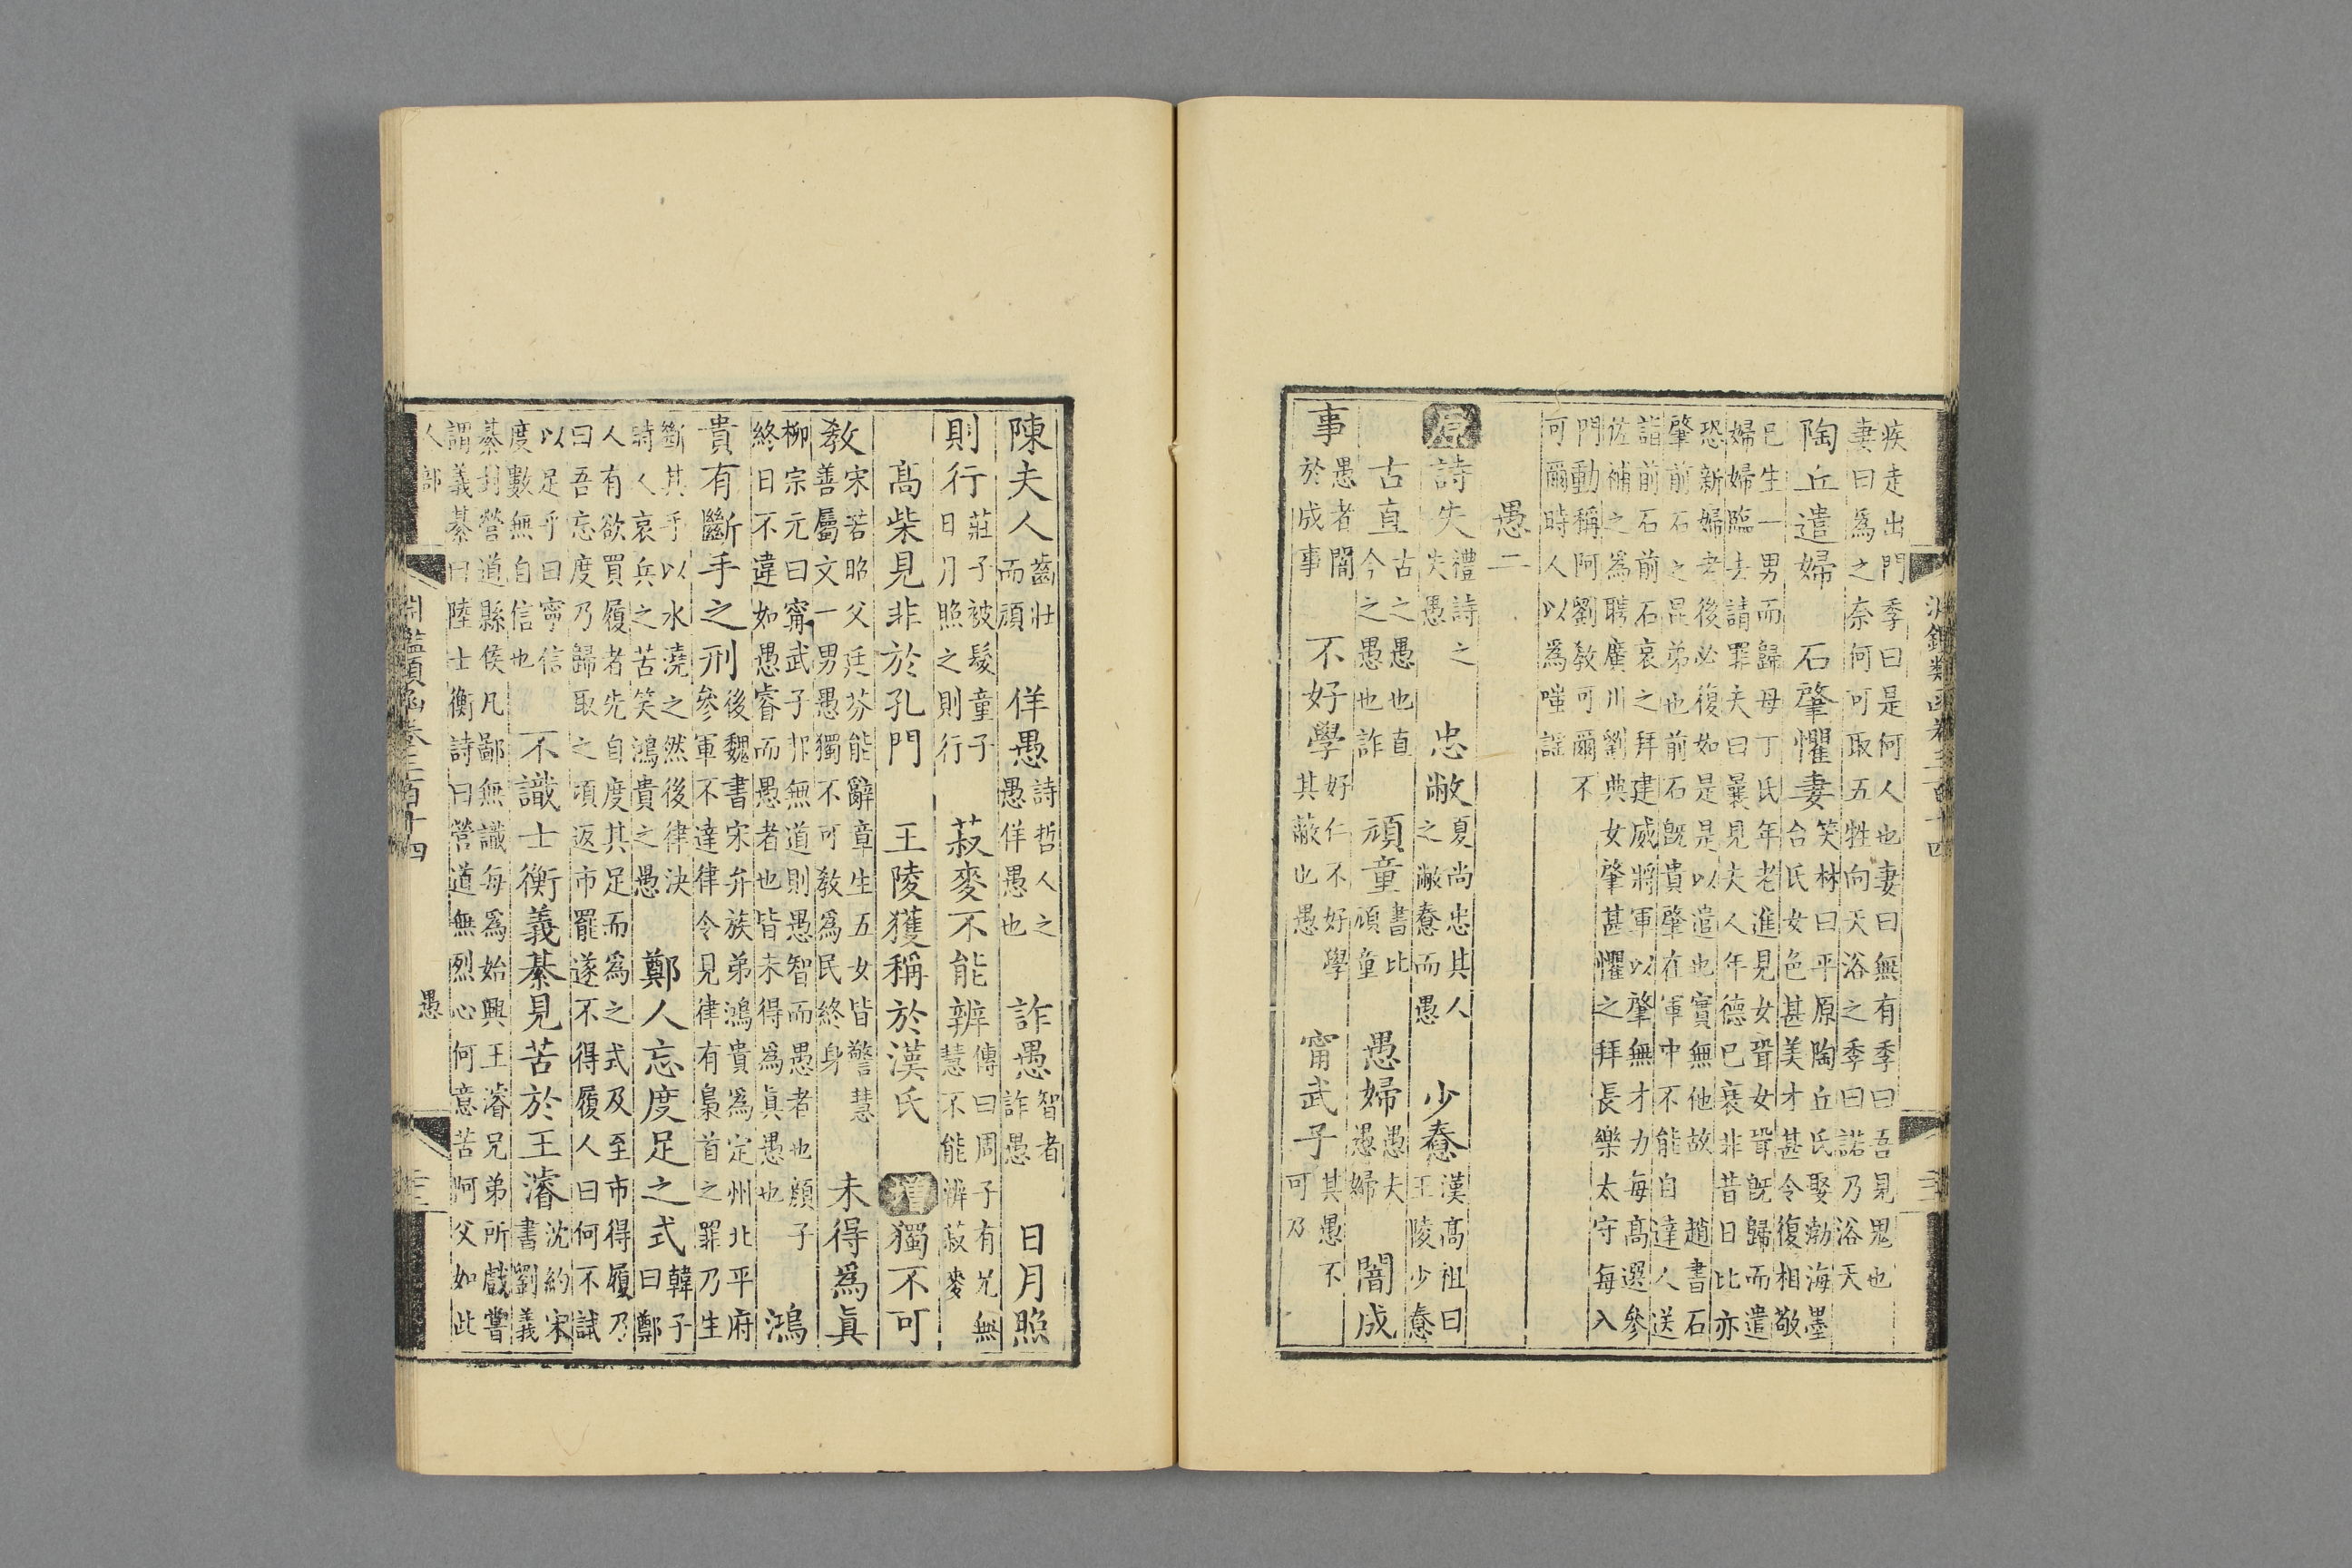 疾走出門季曰是何人也妻曰無有季曰吾見鬼也
妻曰為之奈何可取五牲向天浴之季曰諾乃浴天
陶丘遣婦 石肇懼妻 笑林曰平原陶丘氏娶渤海墨
台氏女色甚美才甚令復相敬
已生一男而歸母丁氏年老進見女壻女壻既歸而遣
婦婦臨去請罪夫曰曩見夫人年德已衰非昔日比亦
恐新婦老後必復如是是以遣也實無他故 趙書石
肇前石之昆弟也前石既貴肇在軍中不能自達人送
詣前石前石哀之拜建威將軍以肇無才力每高選參
佐補之為聘廣川劉典女肇甚懼之拜長樂太守每入
門動稱阿劉敎可爾不
可爾時人以為嗤謠
愚二
原 詩失 禮詩之失愚 忠敝 夏尚忠其人之敝憃而愚 少憃 漢高祖曰王陵少憃
古直 古之愚也直今之愚也詐 頑童 書比頑童 愚婦 愚夫愚婦 闇成
事 愚者闇於成事 不好學 好仁不好學其蔽也愚 甯武子 其愚不可及
淵鑑類函卷三百十四
陳夫人 齒壯而頑 佯愚 詩哲人之愚佯愚也 詐愚 智者詐愚 日月照
則行 莊子被髮童子日月照之則行 菽麥不能辨 傳曰周子有兄無慧不能辨菽麥
高柴見非於孔門 王陵獲稱於漢氏 增 獨不可
敎 宋若昭父廷芬能辭章生五女皆警慧善屬文一男愚獨不可敎為民終身 未得為眞
柳宗元曰甯武子邦無道則愚智而愚者也顏子
終日不違如愚睿而愚者也皆未得為眞愚也 鴻
貴有斷手之刑 後魏書宋弁族弟鴻貴為定州北平府
參軍不達律令見律有梟首之罪乃生
斷其手以水澆之然後律決
時人哀兵之苦笑鴻貴之愚 鄭人忘度足之式 韓子曰鄭
人有欲買履者先自度其足而為之式及至市得履乃
曰吾忘度乃歸取之頃返市罷遂不得履人曰何不試
以足乎曰寧信
度數無自信也 不識士衡義綦見苦於王濬 沈約宋書劉義
綦封營道縣侯凡鄙無識每為始興王濬兄弟所戲嘗
謂義綦曰陸士衡詩曰營道無烈心何意苦阿父如此
人部 愚
淵鑑類函卷三百十四